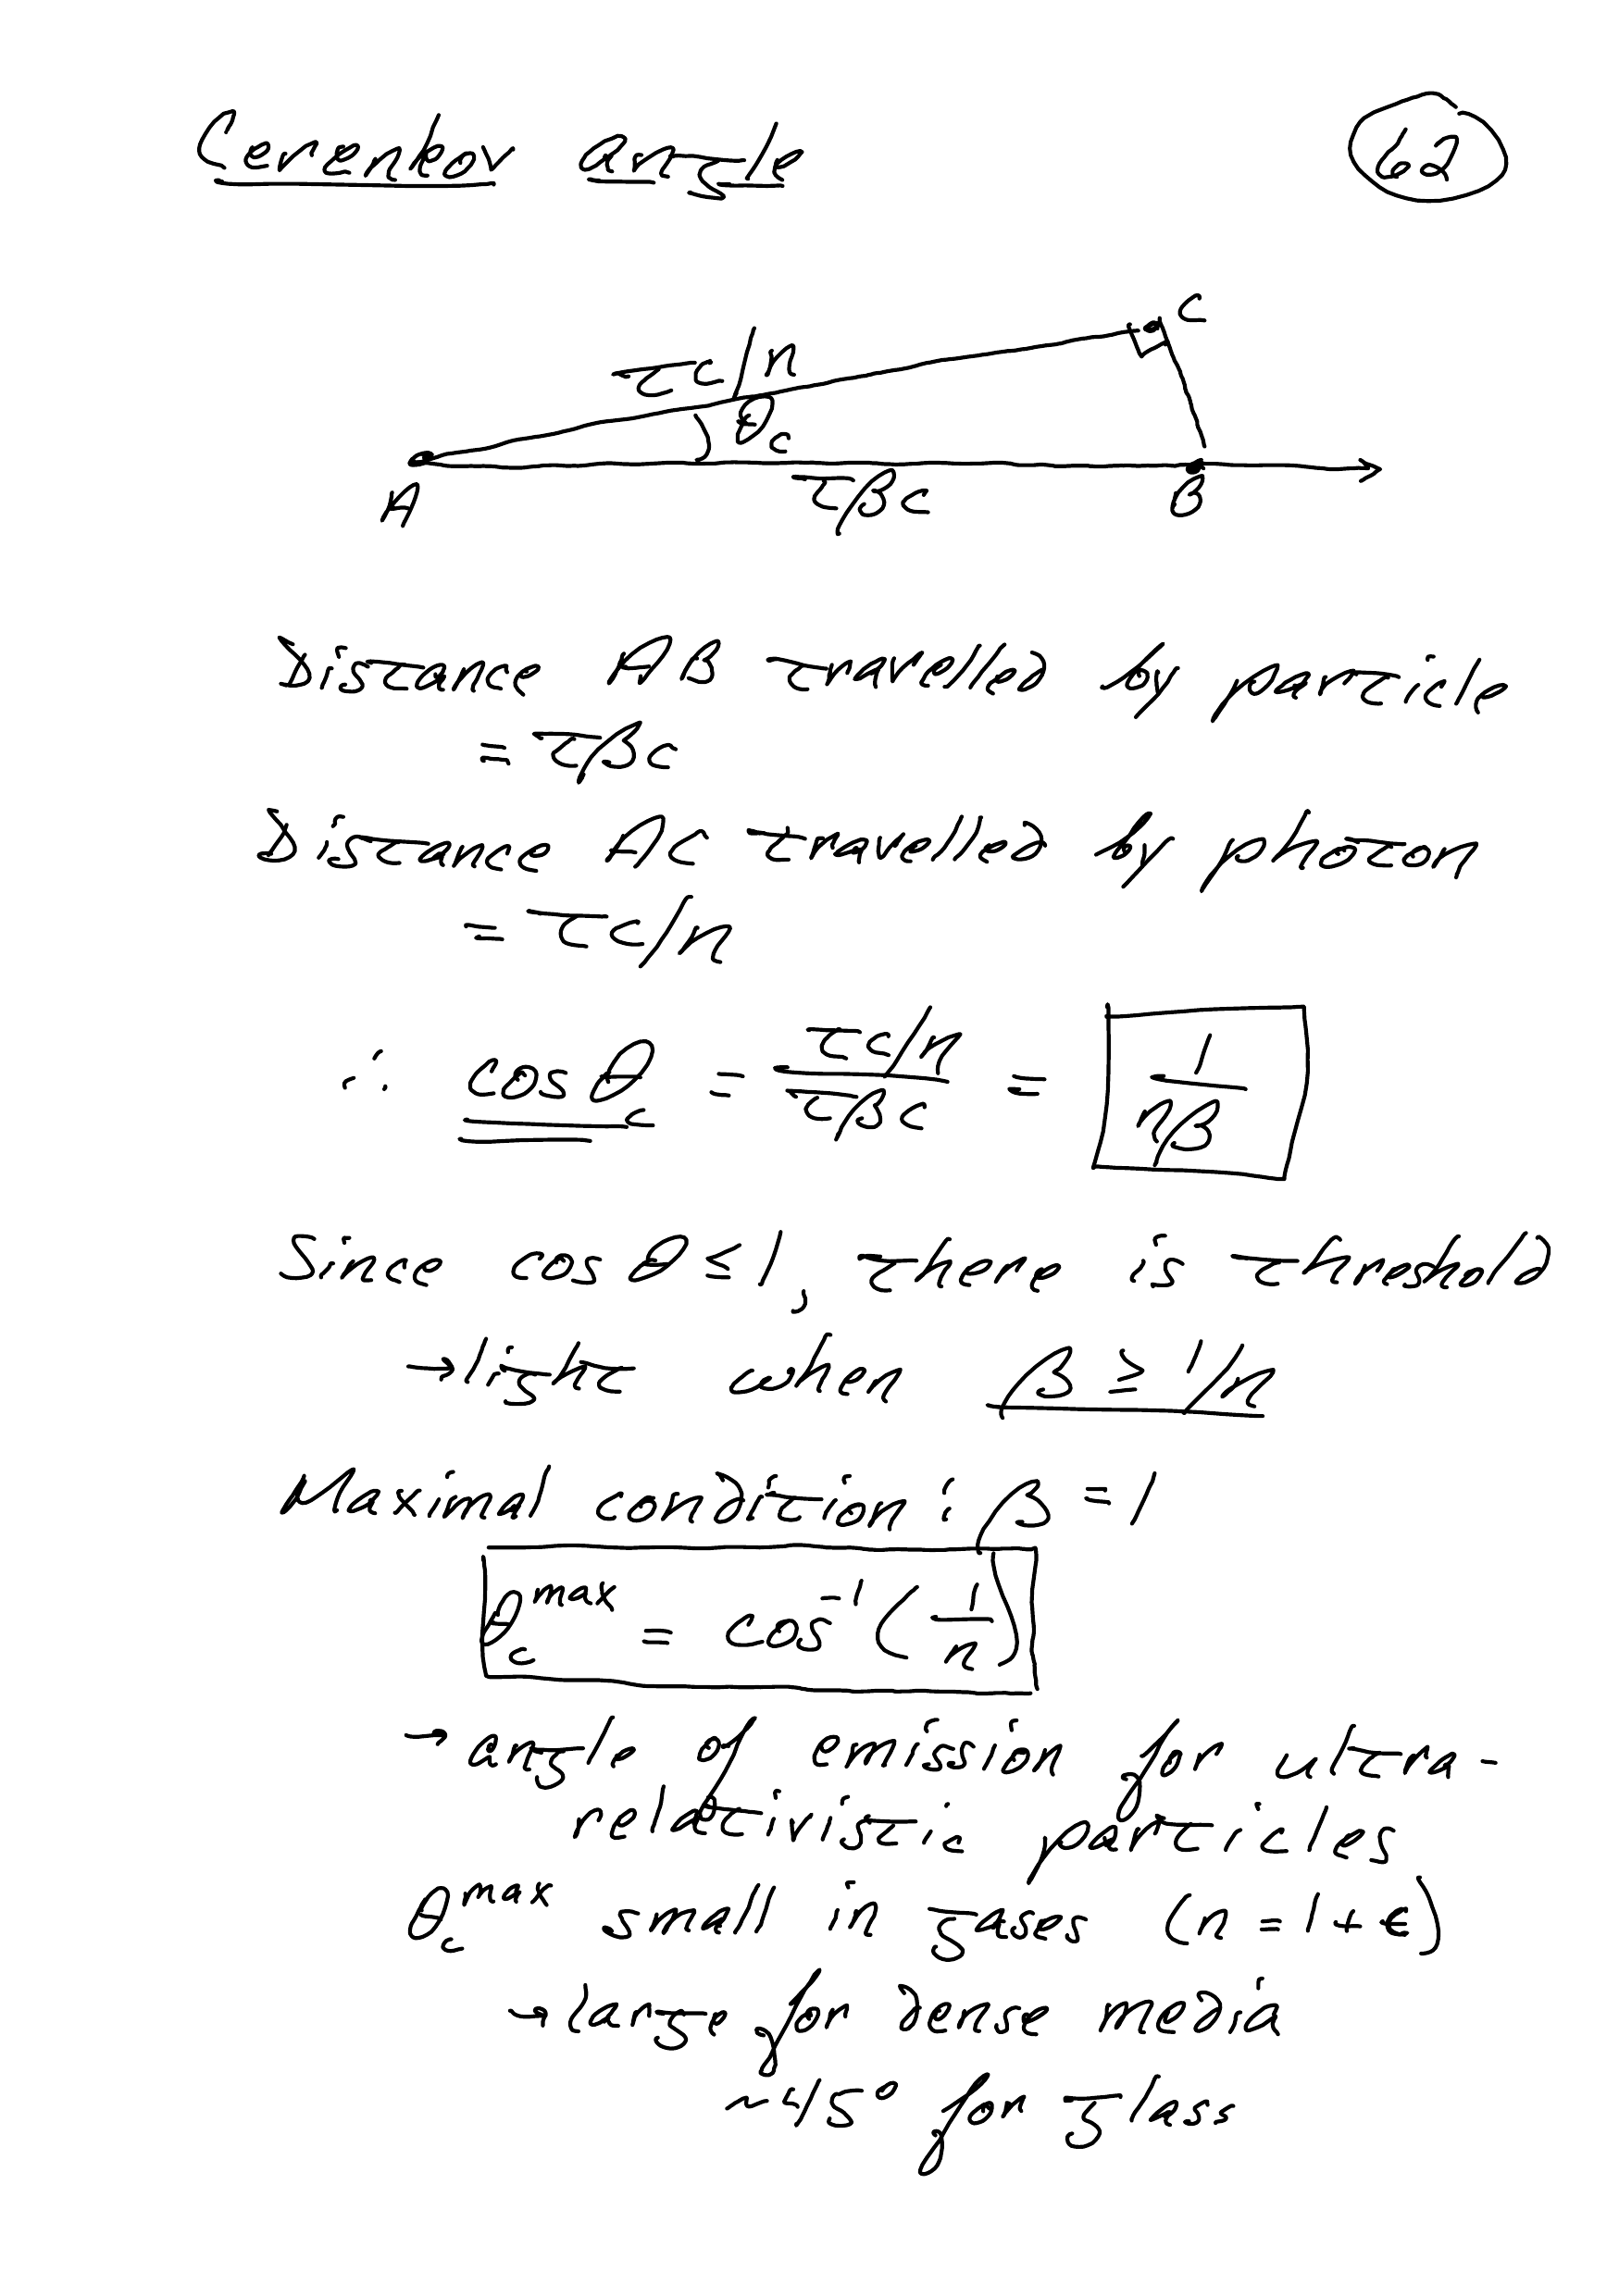 Cerenkov angle
62
C
τc/n
θc
A
τβc
B
Distance AB travelled by particle
= τβc
Distance AC travelled by photon
= τc/n
∴ cos θc = (τc/n)/(τβc) = 1/(nβ)
Since cos θ ≤ 1, there is threshold
→ light when β ≥ 1/n
Maximal condition : β = 1
θc^max = cos⁻¹(1/n)
→ angle of emission for ultra-
relativistic particles
θc^max small in gases (n = 1 + ε)
→ large for dense media
~45° for glass